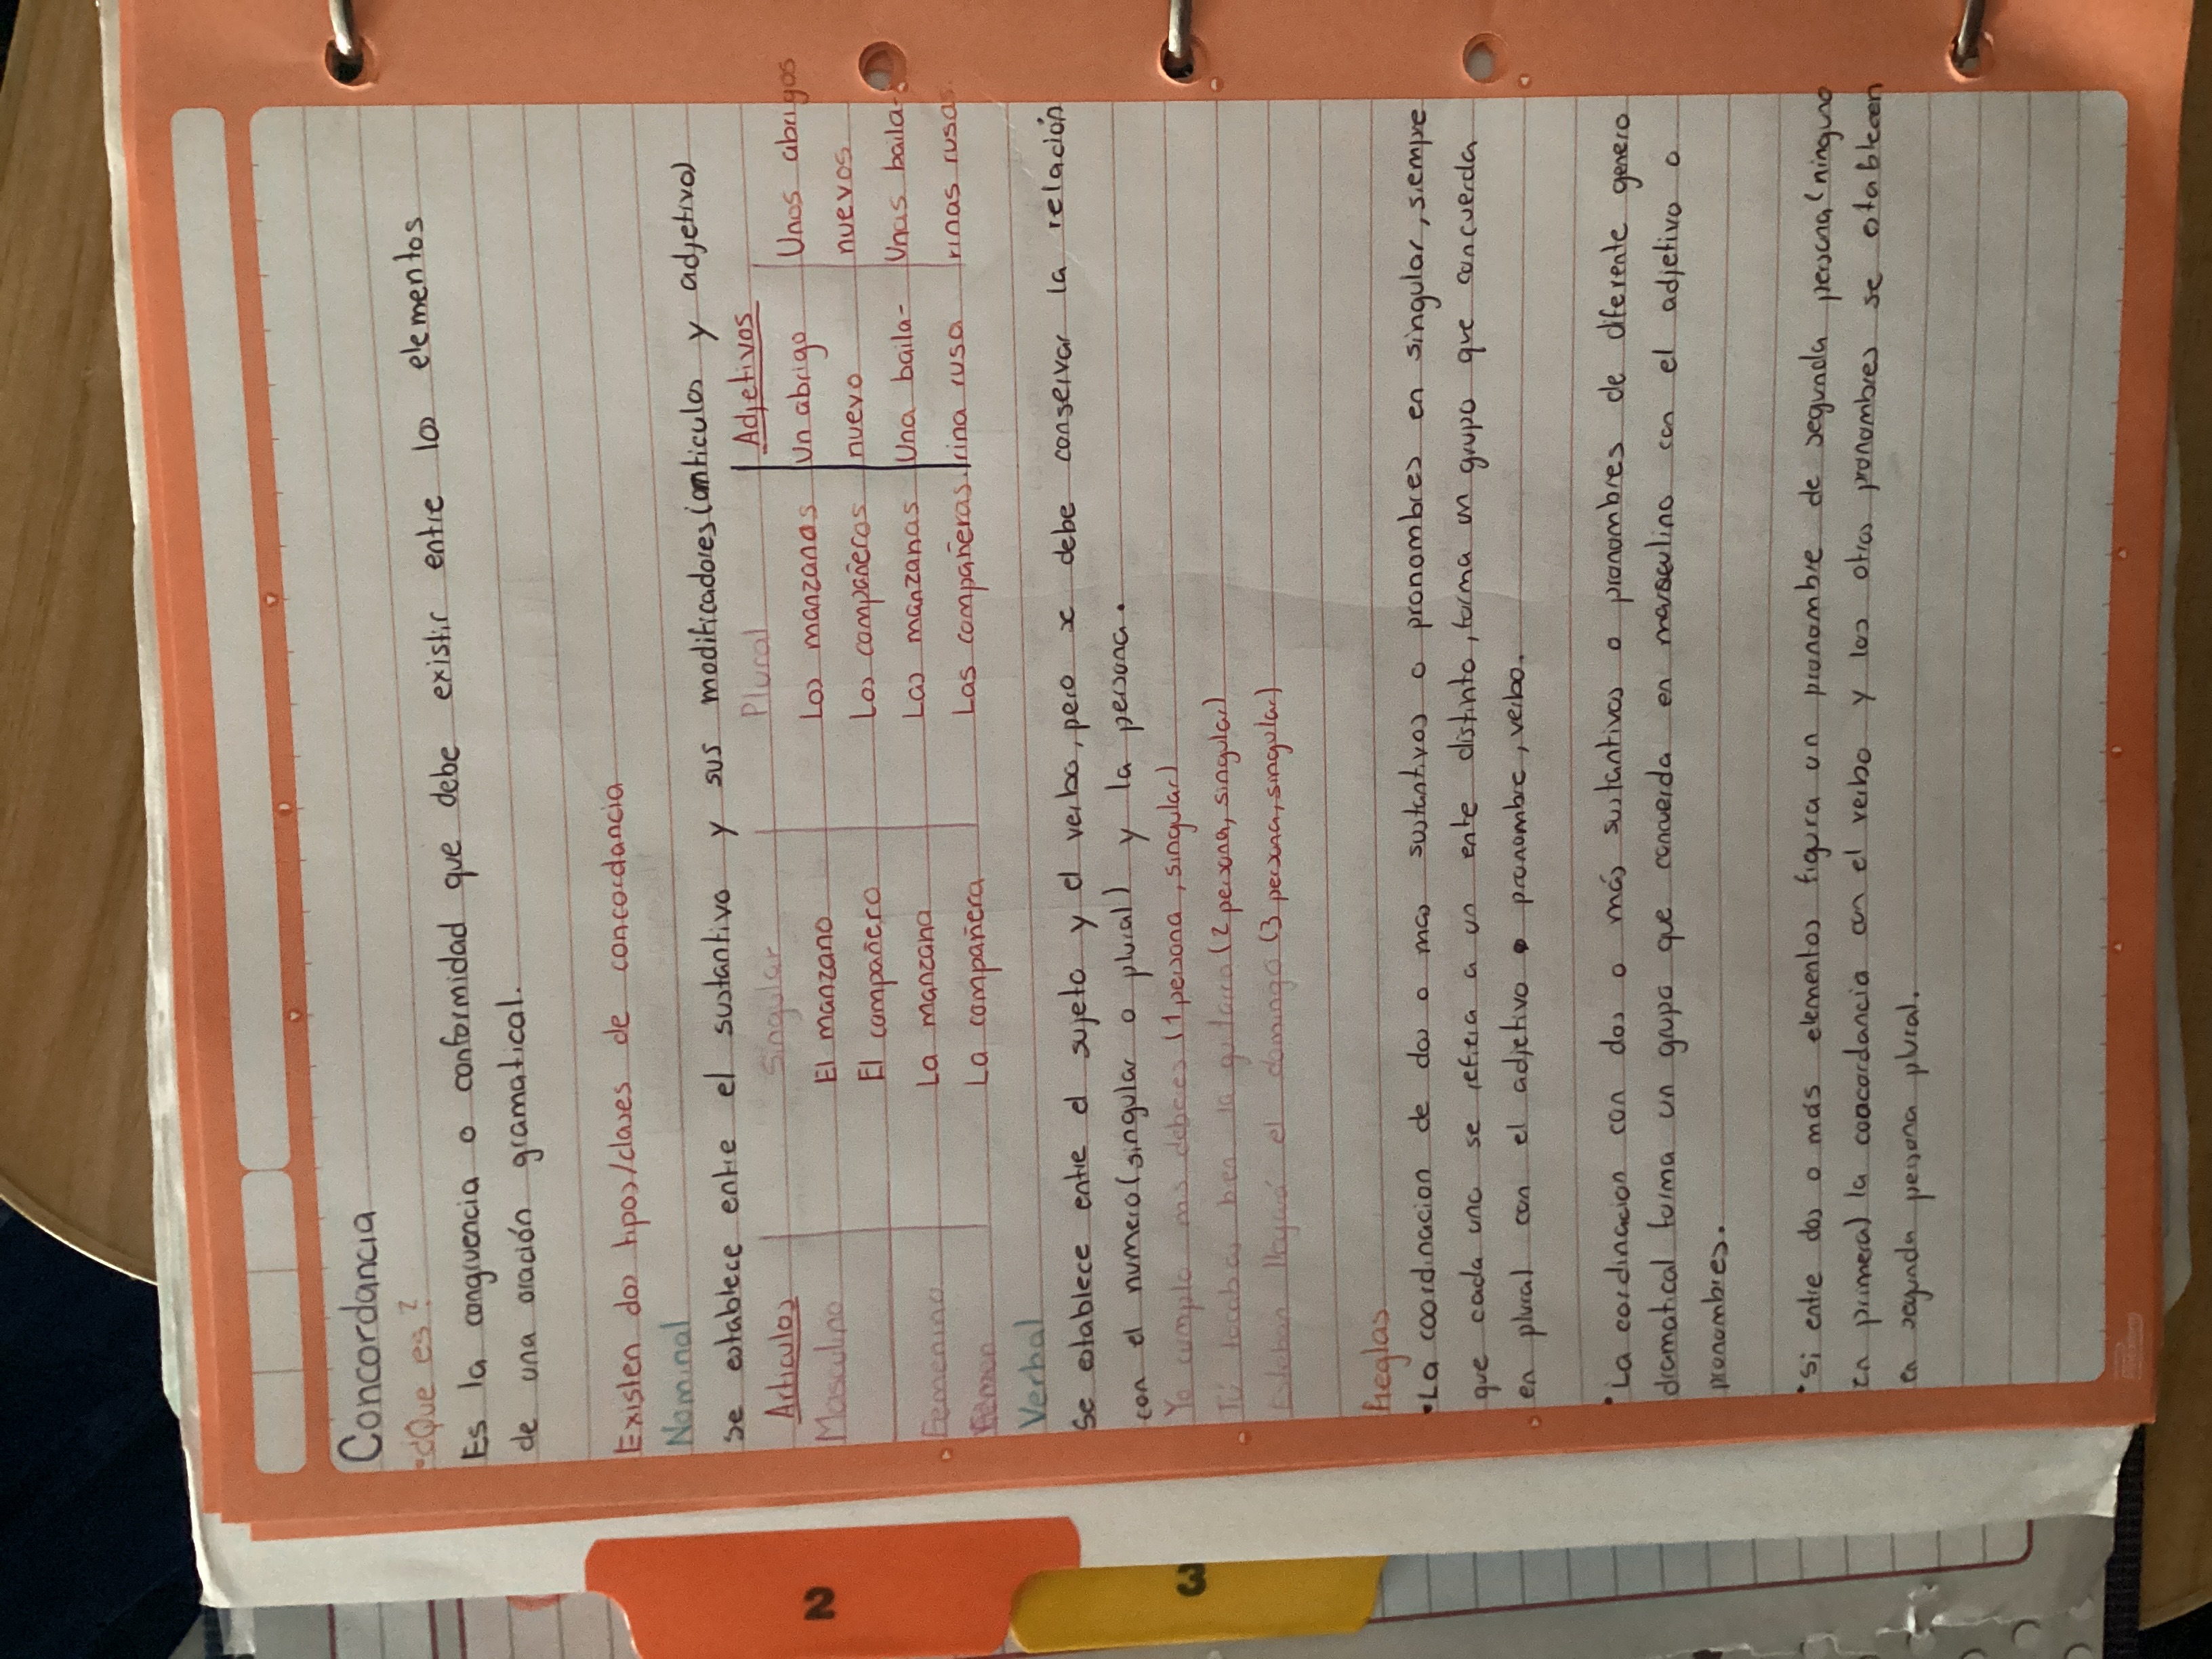 Concordancia
•¿Que es?
Es la congruencia o conformidad que debe existir entre los elementos
de una oración gramatical.
Existen dos tipos/clases de concordancia
Nominal
Se establece entre el sustantivo y sus modificadores(articulos y adjetivo)
Articulos Singular Plural Adjetivos
Masculino El manzano Los manzanos Un abrigo Unos abrigos
El compañero Los compañeros nuevo nuevos
Femenino La manzana Las manzanas Una baila- Unas baila-
La compañera Las compañeras rina rusa rinas rusas.
Verbal
Se establece entre el sujeto y el verbo, pero se debe conservar la relación
con el numero(singular o plural) y la persona.
Yo cumplo mis deberes (1 persona, singular)
Tú tocabas bien la guitarra (2 persona, singular)
Esteban llegará el domingo (3 persona, singular)
Reglas
•La coordinacion de dos o mas sustantivos o pronombres en singular, siempre
que cada uno se refiera a un ente distinto, forma un grupo que concuerda
en plural con el adjetivo o pronombre, verbo.
•La cordinacion con dos o más sustantivos o pronombres de diferente genero
dramatical forma un grupo que concuerda en masculino con el adjetivo o
pronombres.
•Si entre dos o más elementos figura un pronombre de segunda persona(ninguno
en primera) la concordancia con el verbo y los otros pronombres se establecen
en segunda persona plural.
2
3